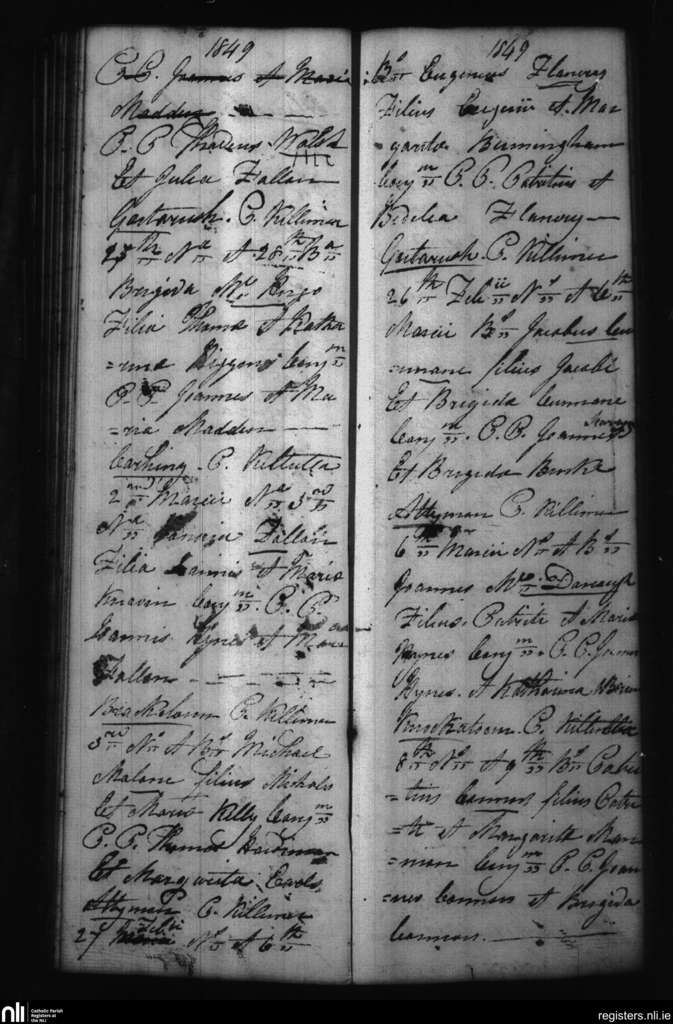 1849
C.C. Joannes et Maria
Madden
P. P. Thadeus Walsh
Et Julia Fallon
Gortarush. P. Killimer
27 th Na et 28 th Ba
Brigida Mc
Filia Thoma et Katha
=rina Higgens Conj m
P. P. Joannes et Ma
=ria Madden
P. Kiltulla
2 nd Marcii Na 3 rd
Na Fallon
Filia Joannis et Maria
Knavin Conj m. P. P.
Joannis Hynes et Maria
Fallon
Brackloon P. Killimer
3 rd No et Bo Michael
Malone filius Nichols
Et Maria Kelly Conj m
P. P. Thomas
Et Margarita
Attyman P. Killimer
27 Febii No et 6 th
1849
Bo Eugenius Flanery
Filius Eugenii et Mar
garita Birmingham
Conj m P. P. Patritius et
Bedelia Flanery
Gortarush P. Killimer
26 th Feb ii No et 6 th
Marcii Bo Jacobus Cu
=nnane filius Jacobi
Et Brigida Cunnane
Conj m. P. P. Joannes
Et Brigida Burke
Attyman P. Killimer
6 th Marcii No et Bo
Joannes Mc Donaugh
Filius Patritii et Maria
Hynes Conj m. P. P. James
Hynes et Katharina
P. Kiltulla
8 th No et 9 th Bo Patri
=tius Cannon filius Patri
=tii et Margarita Man
=nion Conj m P. P. Joan
=nes Cannon et Brigida
Cannon.
nli
Catholic Parish
Registers at
the NLI
registers.nli.ie